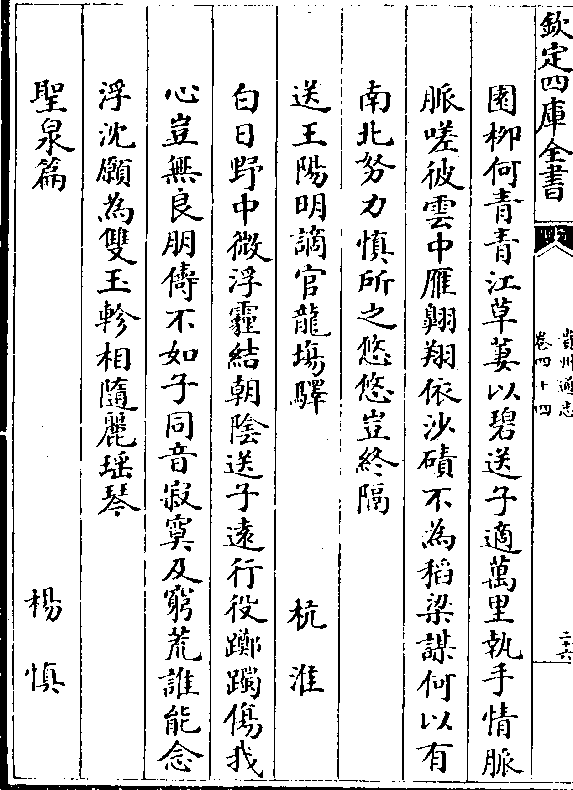 欽定四庫全書
貴州通志
卷四十四
二十六
園柳何青青江草萋以碧送子適萬里執手情脈
脈嗟彼雲中雁翺翔依沙磧不為稻梁謀何以有
南北努力慎所之悠悠豈終隔
送王陽明謫官龍塲驛 杭淮
白日野中微浮霾結朝陰送子逺行役躑躅傷我
心豈無良朋儔不如子同音寂寞及窮荒誰能念
浮沈願為雙玉軫相隨麗瑶琴
聖泉篇 楊慎